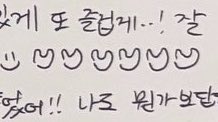 있게 또 즐겁게..! 잘
했어!! 나도 뭔가 보답